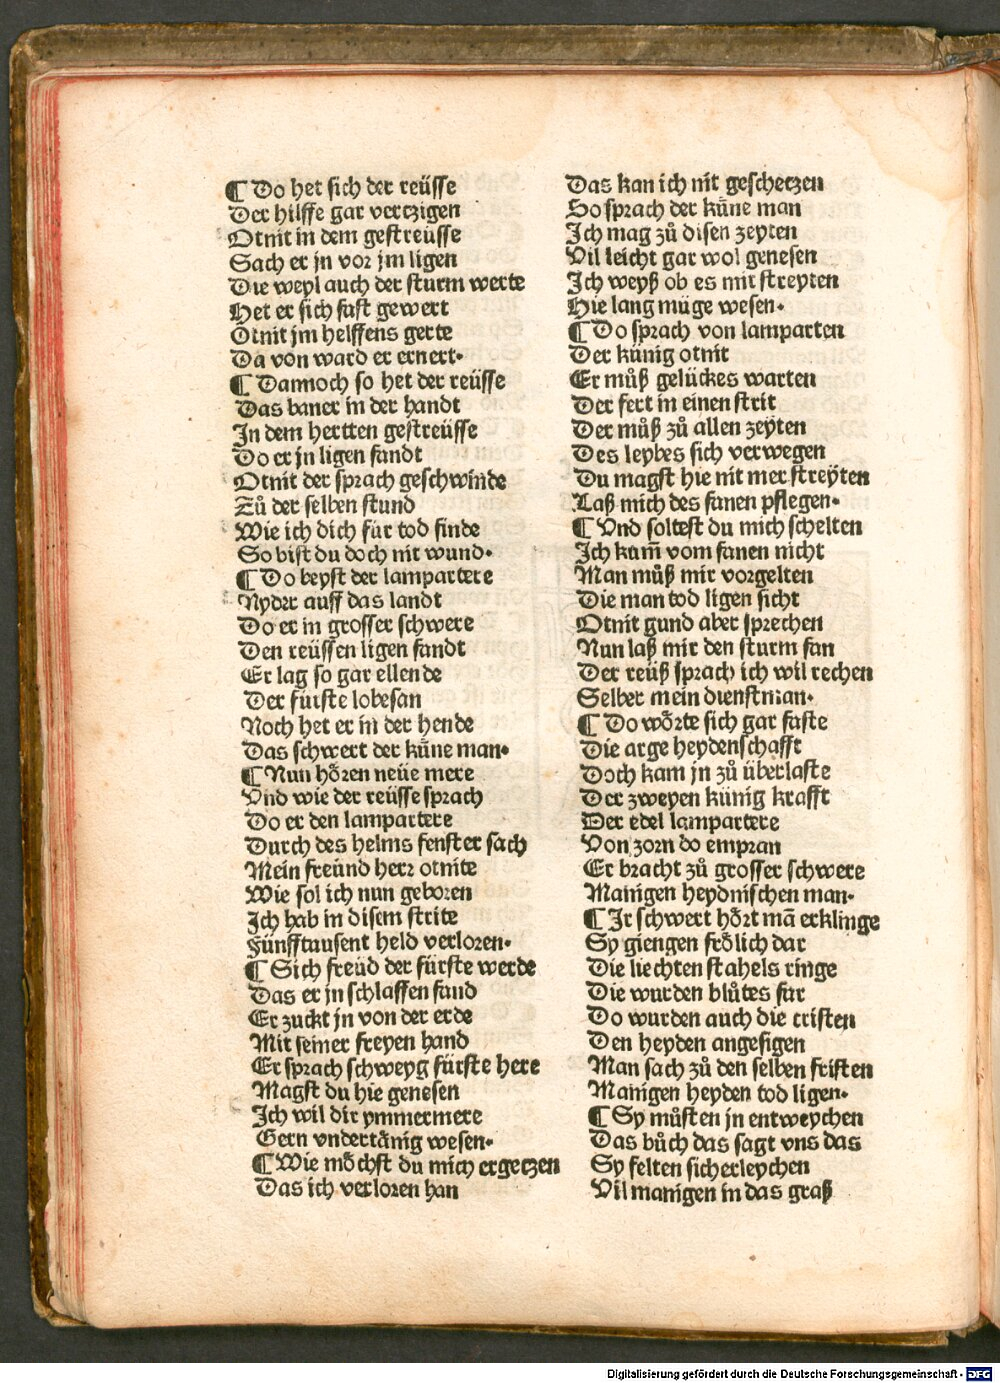 ¶ Do het sich der reüsse
Der hilffe gar verczigen
Otnit in dem gestreüsse
Sach er jn vor jm ligen
Die weyl auch der sturm werte
Het er sich fast gewert
Otnit jm helffens gerte
Da von ward er ernert.
¶ Dannoch so het der reüsse
Das baner in der handt
In dem hertten gestreüsse
Do er jn ligen fandt
Otnit der sprach geschwinde
Zů der selben stund
Wie ich dich für tod finde
So bist du doch nit wund.
¶ Do beyst der lampartere
Nyder auff das landt
Do er in grosser schwere
Den reüssen ligen fandt
Er lag so gar ellende
Der fürste lobesan
Noch het er in der hende
Das schwert der küne man.
¶ Nun hören neüe mere
Vnd wie der reüsse sprach
Do er den lampartere
Durch des helms fenster sach
Mein freünd herr otnite
Wie sol ich nun geboren
Ich hab in disem strite
Fünfftausent held verloren.
¶ Sich freüd der fürste werde
Das er jn schlaffen fand
Er zuckt jn von der erde
Mit seiner freyen hand
Er sprach schweyg fürste here
Magst du hie genesen
Ich wil dir ymmermere
Gern vndertänig wesen.
¶ Wie möchst du mich ergeczen
Das ich verloren han
Das kan ich nit gescheczen
So sprach der küne man
Ich mag zů disen zeyten
Vil leicht gar wol genesen
Ich weyß ob es mit streyten
Hie lang müge wesen.
¶ Do sprach von lamparten
Der künig otnit
Er můß gelückes warten
Der fert in einen strit
Der můß zů allen zeyten
Des leybes sich verwegen
Du magst hie nit mer streyten
Laß mich des fanen pflegen.
¶ Vnd soltest du mich schelten
Ich kam̄ vom fanen nicht
Man můß mir vorgelten
Die man tod ligen sicht
Otnit gund aber sprechen
Nun laß mir den sturm fan
Der reüß sprach ich wil rechen
Selber mein dienstman.
¶ Do wörte sich gar faste
Die arge heydenschafft
Doch kam jn zů überlaste
Der zweyen künig krafft
Der edel lampartere
Von zorn do empran
Er bracht zů grosser schwere
Manigen heydnischen man.
¶ Ir schwert hört mā erklinge
Sy giengen frölich dar
Die liechten stahels ringe
Die wurden blůtes far
Do wurden auch die cristen
Den heyden angesigen
Man sach zů den selben fristen
Manigen heyden tod ligen.
¶ Sy můsten jn entweychen
Das bůch das sagt vns das
Sy felten sicherleychen
Vil manigen in das graß
Digitalisierung gefördert durch die Deutsche Forschungsgemeinschaft - DFG